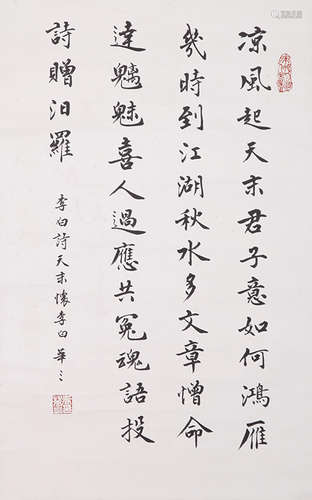 凉風起天末君子意如何鴻雁
幾時到江湖秋水多文章憎命
達魑魅喜人過應共冤魂語投
詩贈汨羅
李白詩天末懷李白華〻